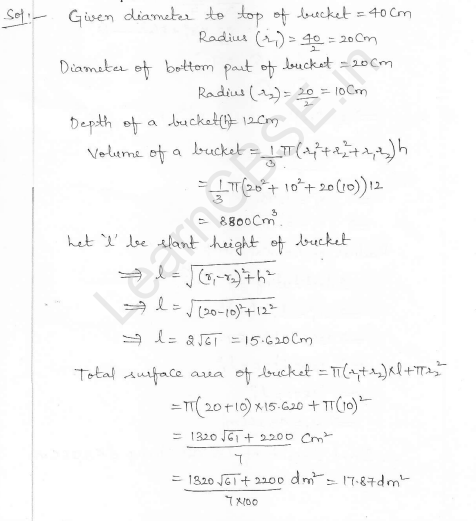 Sol:- Given diameter to top of bucket = 40cm
Radius (r₁) = 40/2 = 20cm
Diameter of bottom part of bucket = 20cm
Radius (r₂) = 20/2 = 10cm
Depth of a bucket(h) = 12cm
Volume of a bucket = 1/3 π(r₁²+r₂²+r₁r₂)h
= 1/3 π(20²+10²+20(10))12
= 8800cm³.
Let 'l' be slant height of bucket
⇒ l = √((r₁-r₂)²+h²)
⇒ l = √((20-10)²+12²)
⇒ l = 2√61 = 15.620cm
Total surface area of bucket = π(r₁+r₂)×l+πr₂²
= π(20+10)×15.620+π(10)²
= (1320√61+2200)/7 cm²
= (1320√61+2200)/(7×100) dm² = 17.87dm²
LearnCBSE.in